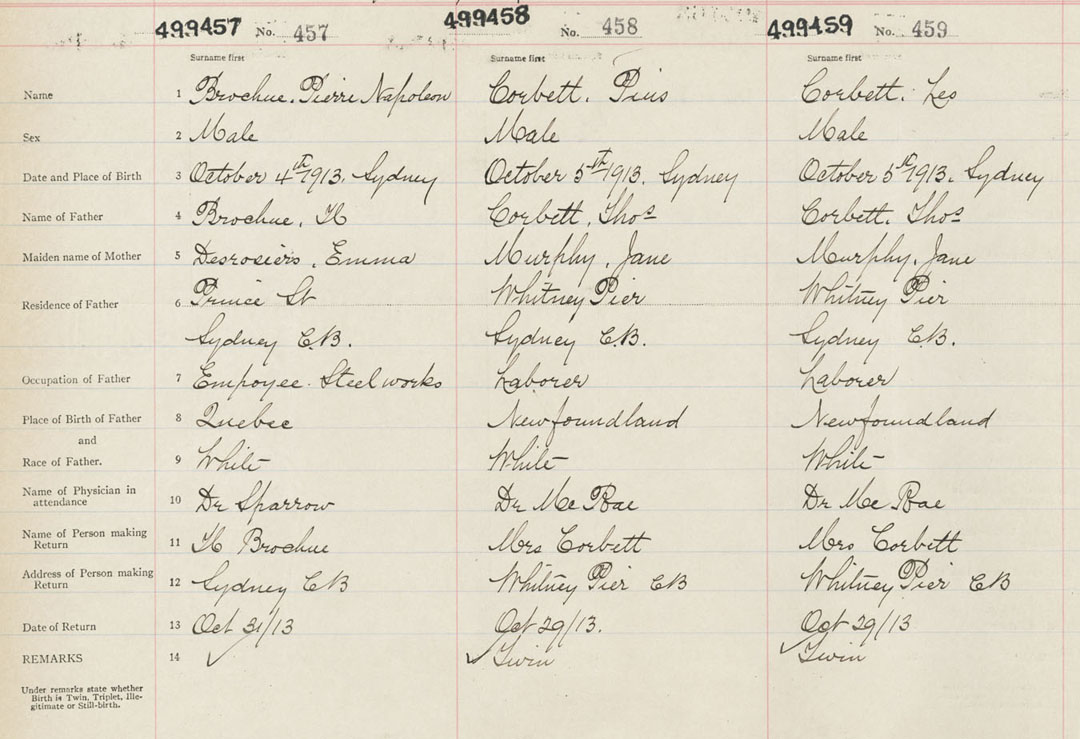 499457 No. 457 499458 No. 458 499459 No. 459
Surname first Surname first Surname first
Name 1 Brochue. Pierre Napoleon Corbett. Pius Corbett. Leo
Sex 2 Male Male Male
Date and Place of Birth 3 October 4th 1913. Sydney October 5th 1913. Sydney October 5th 1913. Sydney
Name of Father 4 Brochue. H Corbett. Thos Corbett. Thos
Maiden name of Mother 5 Desrosiers. Emma Murphy. Jane Murphy. Jane
Residence of Father 6 Prince St Whitney Pier Whitney Pier
Sydney C.B. Sydney C.B. Sydney C.B.
Occupation of Father 7 Empoyee. Steel works Laborer Laborer
Place of Birth of Father 8 Quebec Newfoundland Newfoundland
and
Race of Father. 9 White White White
Name of Physician in
attendance 10 Dr Sparrow Dr McRae Dr McRae
Name of Person making
Return 11 H Brochue Mrs Corbett Mrs Corbett
Address of Person making
Return 12 Sydney CB Whitney Pier CB Whitney Pier CB
Date of Return 13 Oct 31/13 Oct 29/13. Oct 29/13
REMARKS 14 ✓ ✓ Twin ✓ Twin
Under remarks state whether
Birth is Twin, Triplet, Ille-
gitimate or Still-birth.